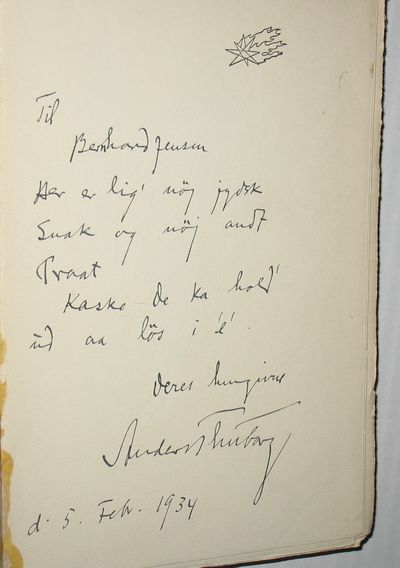 Til
Bernhard Jensen
Her er lig' nöj jydsk
Snak og nöj andt
Praat
Kaske De ka hold'
ud aa lös i 'é'.
Deres hengivne
Anders Thuborg
d. 5. Feb. 1934